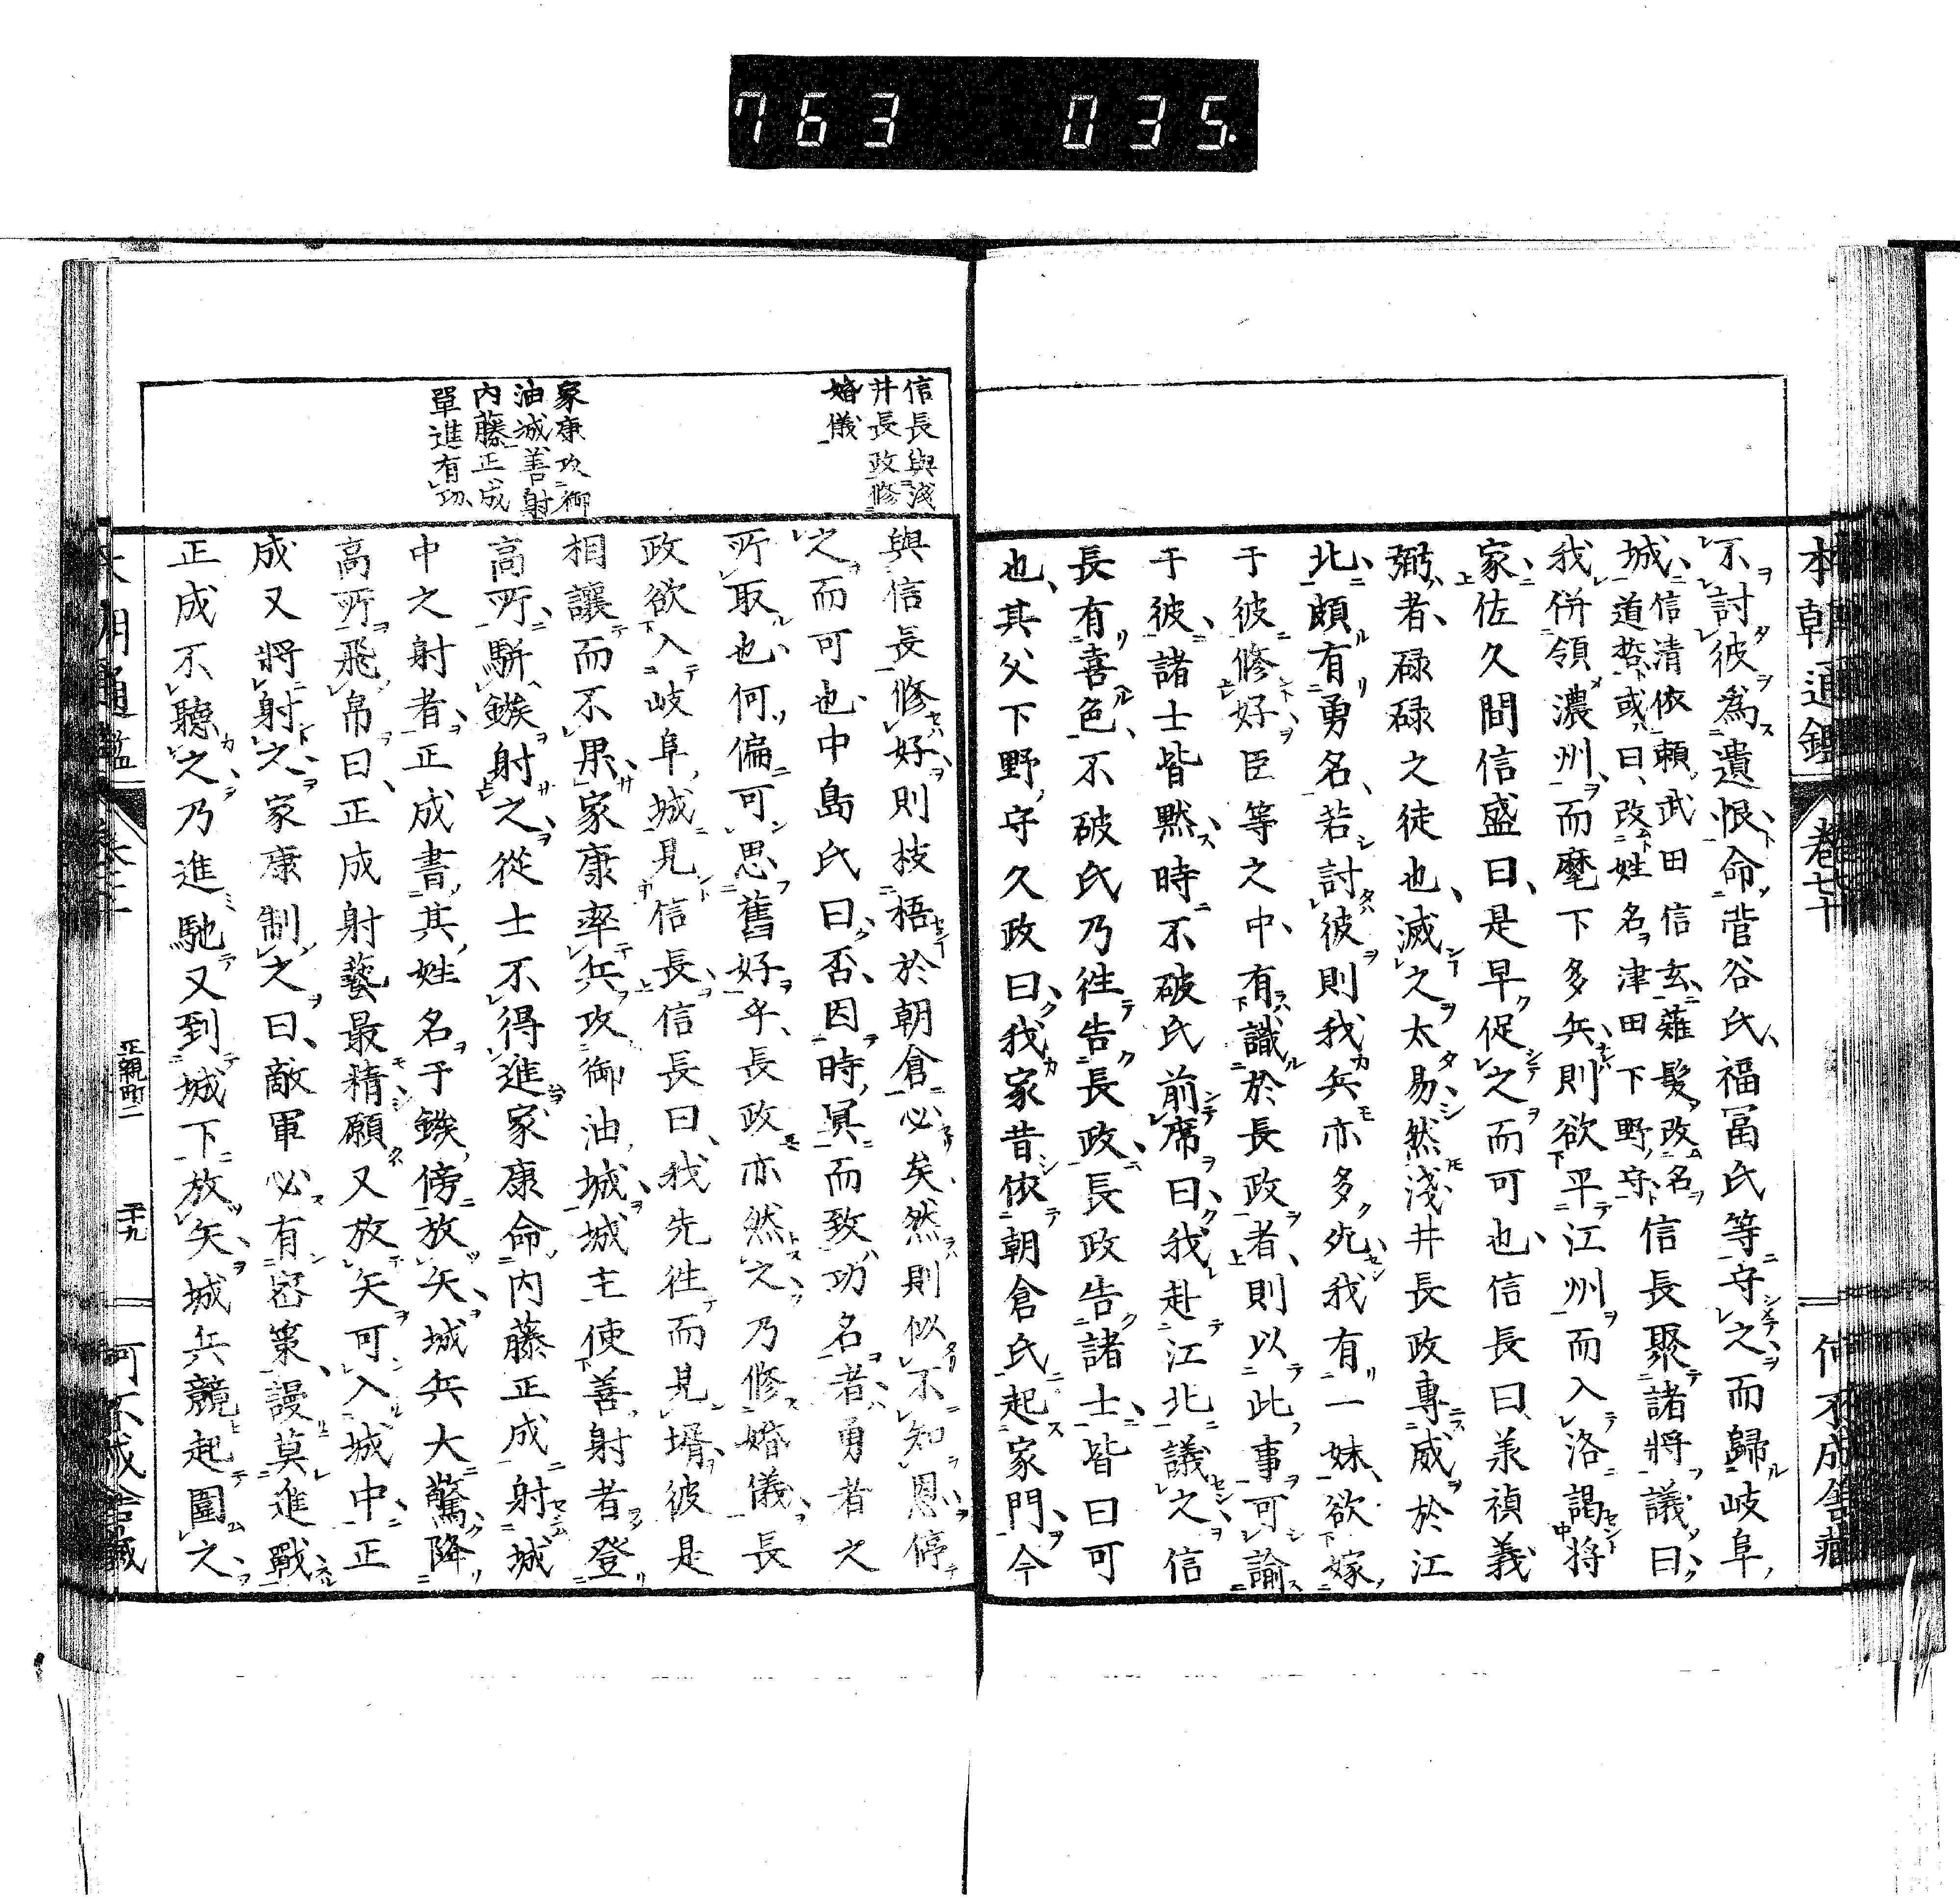 763 035.
本朝通鑑 卷七十 何不成舎藏
不討彼爲遺恨命菅谷氏福冨氏等守之而歸岐阜
城信清依頼武田信玄薙髮改名
道哲或曰改姓名津田下野守信長聚諸將議曰
我併領濃州而麾下多兵則欲平江州而入洛謁將
家佐久間信盛曰是早促之而可也信長曰義禎義
弼者碌碌之徒也滅之太易然淺井長政專威於江
北頗有勇名若討彼則我兵亦多死我有一妹欲嫁
于彼修好臣等之中有識於長政者則以此事可諭
于彼諸士皆默時不破氏前席曰我赴江北議之信
長有喜色不破氏乃徃告長政長政告諸士皆曰可
也其父下野守久政曰我家昔依朝倉氏起家門今
信長與淺
井長政修
婚儀
家康攻御
油城善射
内藤正成
單進有功
與信長修好則枝梧於朝倉必矣然則似不知恩停
之而可也中島氏曰否因時冥而致功名者勇者之
所取也何偏可思舊好乎長政亦然之乃修婚儀長
政欲入岐阜城見信長信長曰我先徃而見壻彼是
相讓而不果家康率兵攻御油城城主使善射者登
高所駢鏃射之從士不得進家康命内藤正成射城
中之射者正成書其姓名于鏃傍放矢城兵大驚降
高所飛帛曰正成射藝最精願又放矢可入城中正
成又將射之家康制之曰敵軍必有密策謾莫進戰
正成不聽之乃進馳又到城下放矢城兵競起圍之
正親町二 五十九